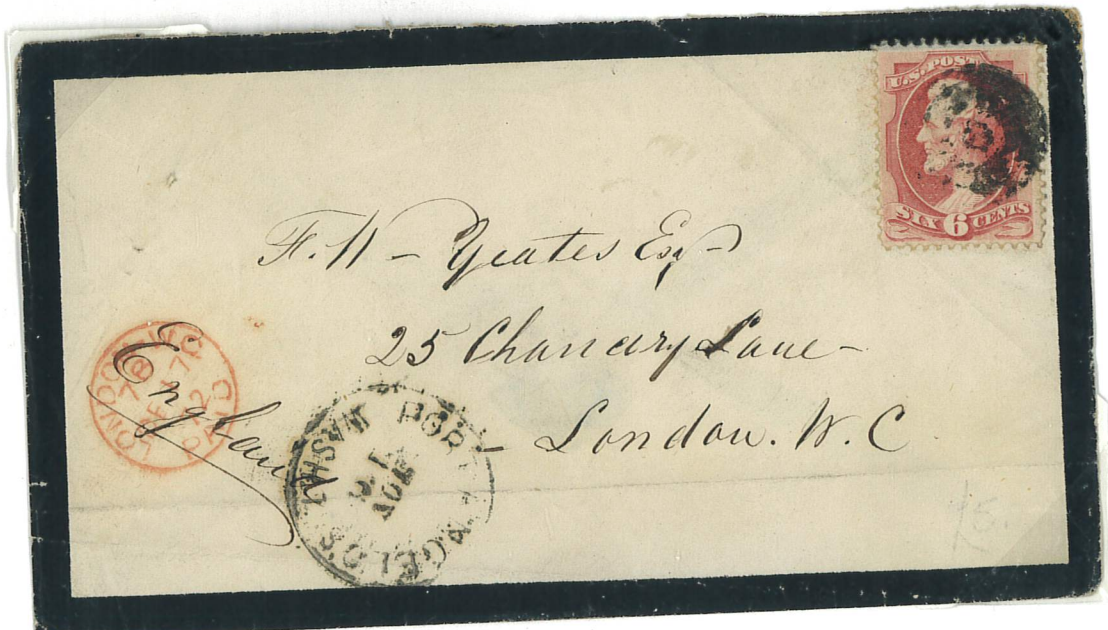 U.S. POST
SIX 6 CENTS
F. W – Yeates Esq
25 Chancery Lane –
London. W. C
England
LONDON
PAID
PORT ANGELOS WASH T
AUG